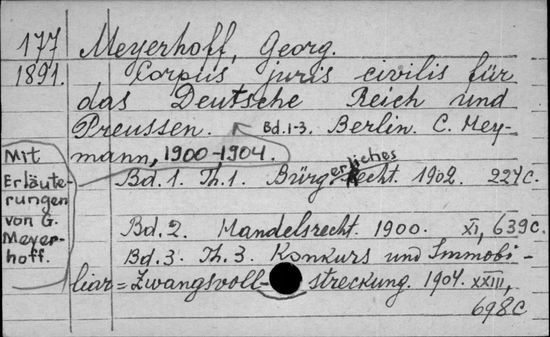 177 Meyerhoff, Georg.
1891. Corpus juris civilis für
das Deutsche Reich und
Preussen. Bd. 1-3. Berlin. C. Mey-
mann, 1900-1904.
Mit
Erläute-
rungen
von G.
Meyer-
hoff.
Bd. 1. Th. 1. Bürgerliches Recht. 1902. 224 C.
Bd. 2. Handelsrecht. 1900. XI, 639 C.
Bd. 3. Th. 3. Konkurs und Immobi-
liar= Zwangsvoll- streckung. 1904. XXIII,
698 C